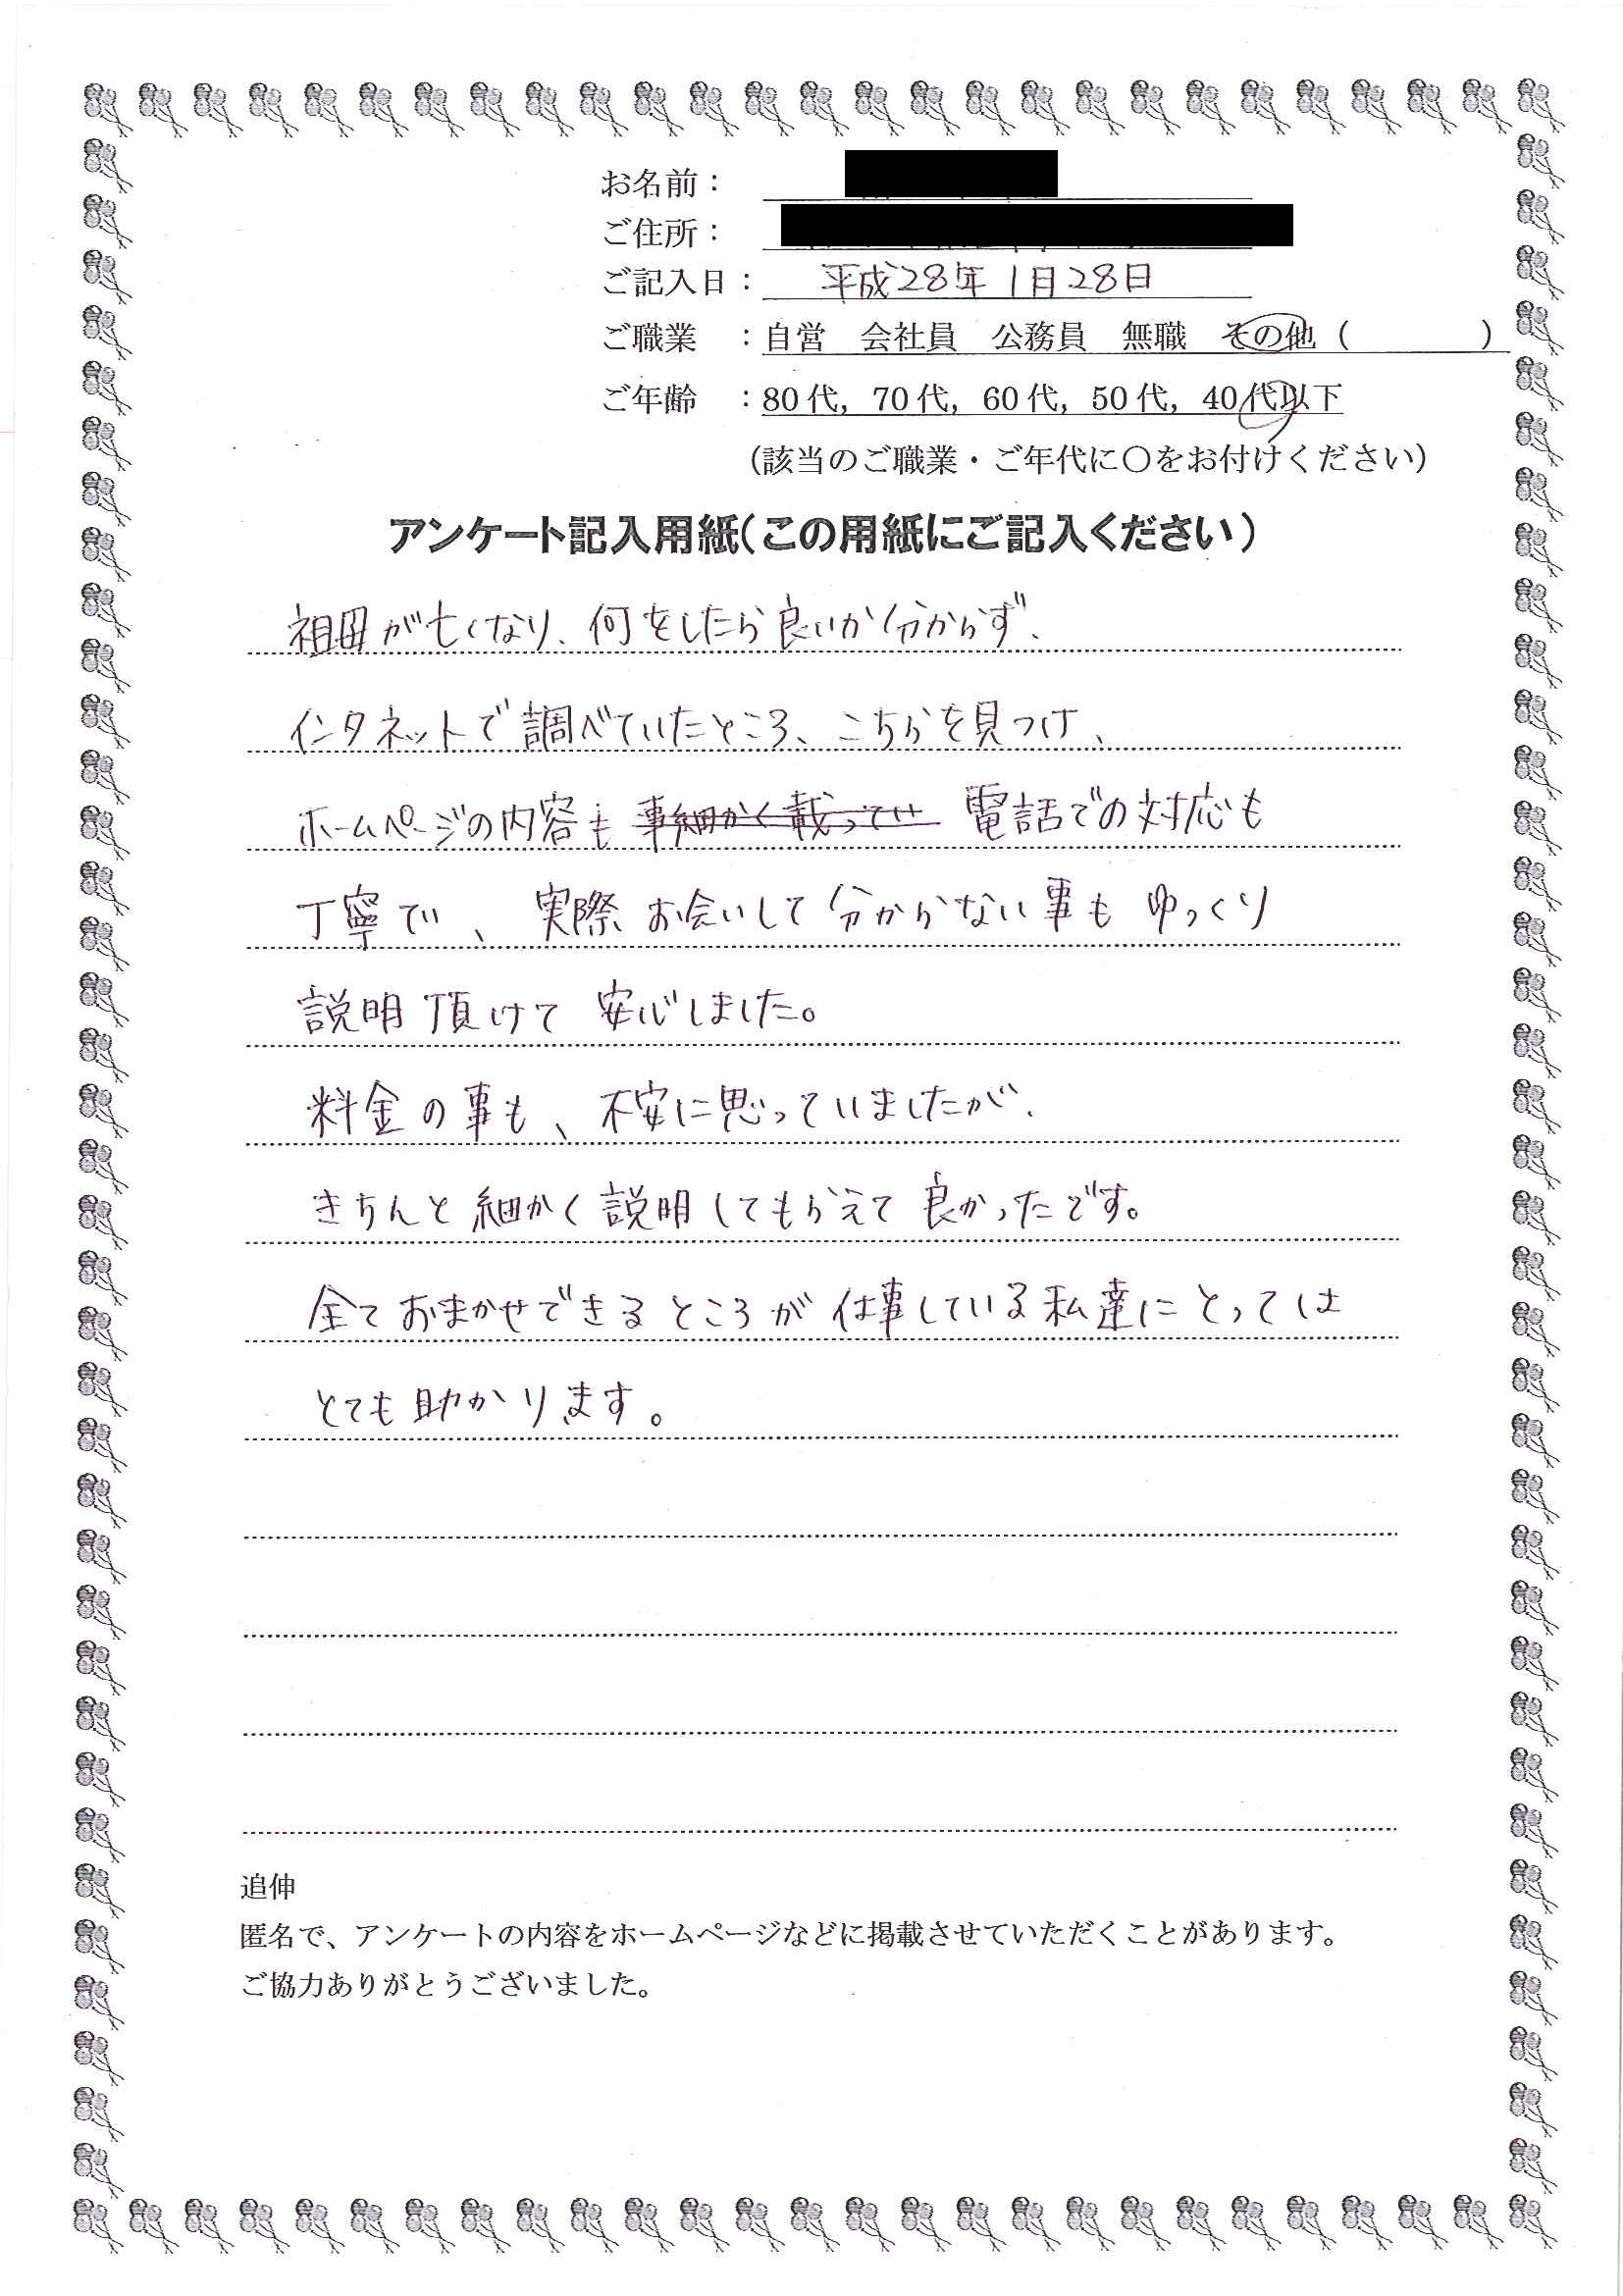 お名前：
ご住所：
ご記入日： 平成28年1月28日
ご職業 ：自営 会社員 公務員 無職 その他（ ）
ご年齢 ：80代，70代，60代，50代，40代以下
（該当のご職業・ご年代に〇をお付けください）
アンケート記入用紙（この用紙にご記入ください）
祖母が亡くなり、何をしたら良いか分からず、
インタネットで調べていたところ、こちらを見つけ、
ホームページの内容も 事細かく載ってせ 電話での対応も
丁寧でい、実際お会いして分からない事もゆっくり
説明頂けて安心しました。
料金の事も、不安に思っていましたが、
きちんと細かく説明してもらえて良かったです。
全ておまかせできるところが仕事している私達にとっては
とても助かります。
追伸
匿名で、アンケートの内容をホームページなどに掲載させていただくことがあります。
ご協力ありがとうございました。